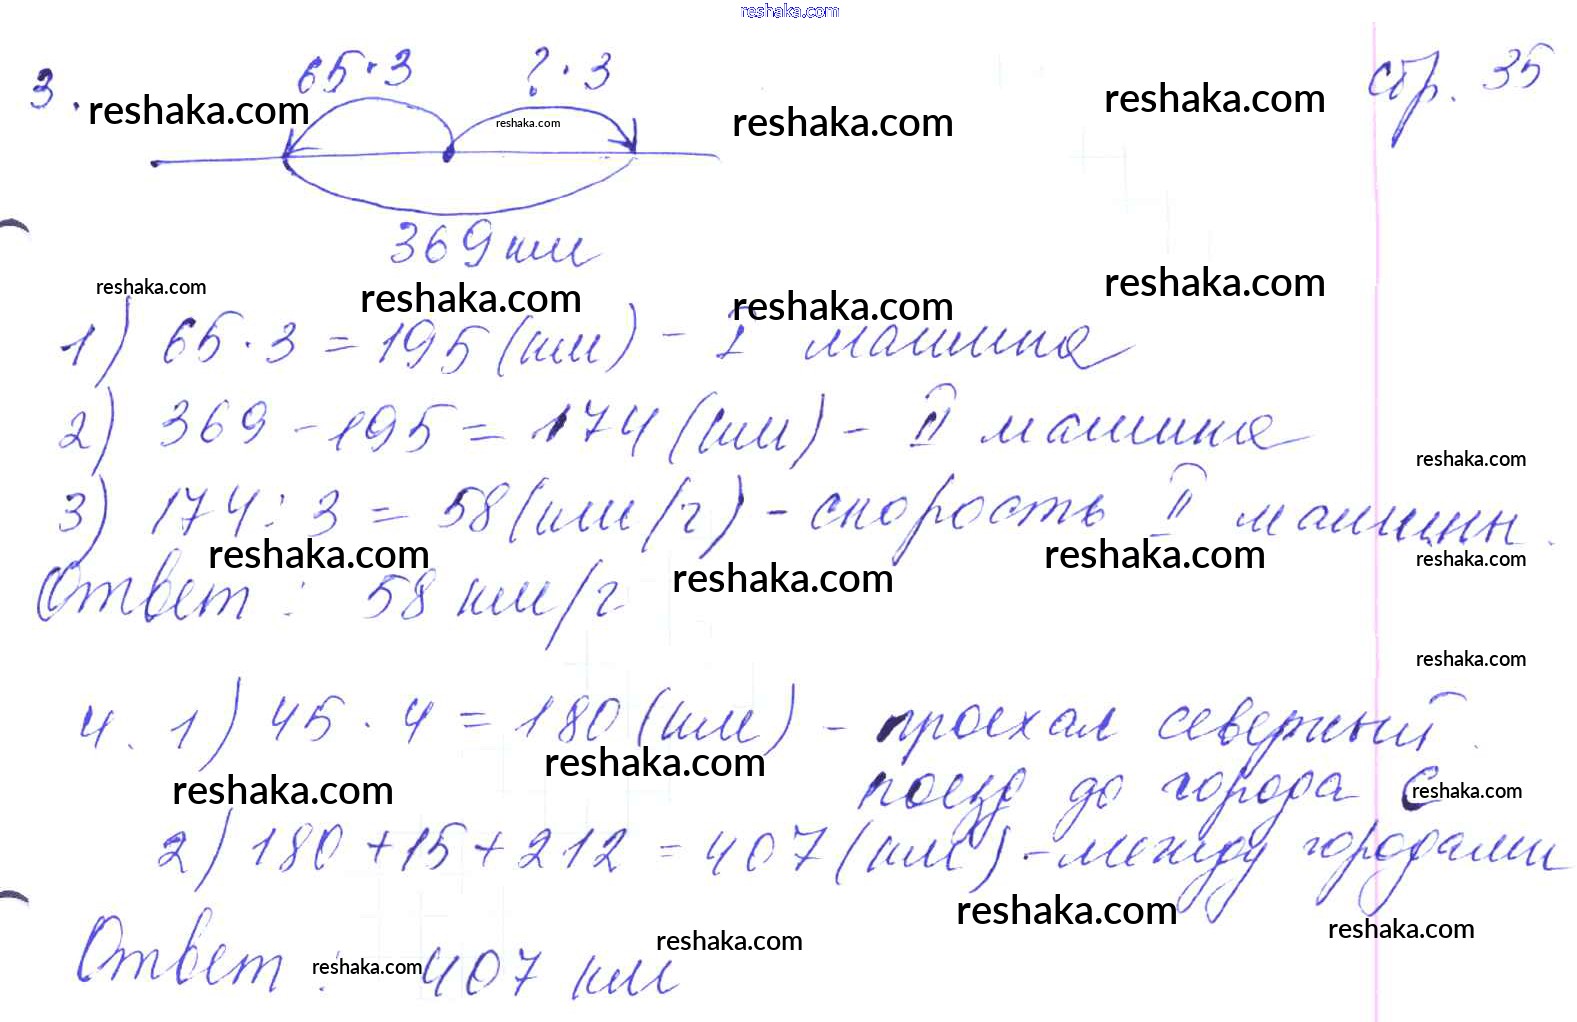 reshaka.com
65·3 ?·3 стр. 35
3. reshaka.com reshaka.com reshaka.com reshaka.com
369 км
reshaka.com reshaka.com reshaka.com reshaka.com
1) 65·3 = 195 (км) - I машина
2) 369 - 195 = 174 (км) - II машина
reshaka.com
3) 174 : 3 = 58 (км/г) - скорость II машины.
reshaka.com reshaka.com reshaka.com reshaka.com
Ответ : 58 км/г
reshaka.com
4. 1) 45 · 4 = 180 (км) - проехал северный
reshaka.com reshaka.com поезд до города С reshaka.com
2) 180 + 15 + 212 = 407 (км) - между городами
reshaka.com reshaka.com reshaka.com
Ответ : reshaka.com 407 км